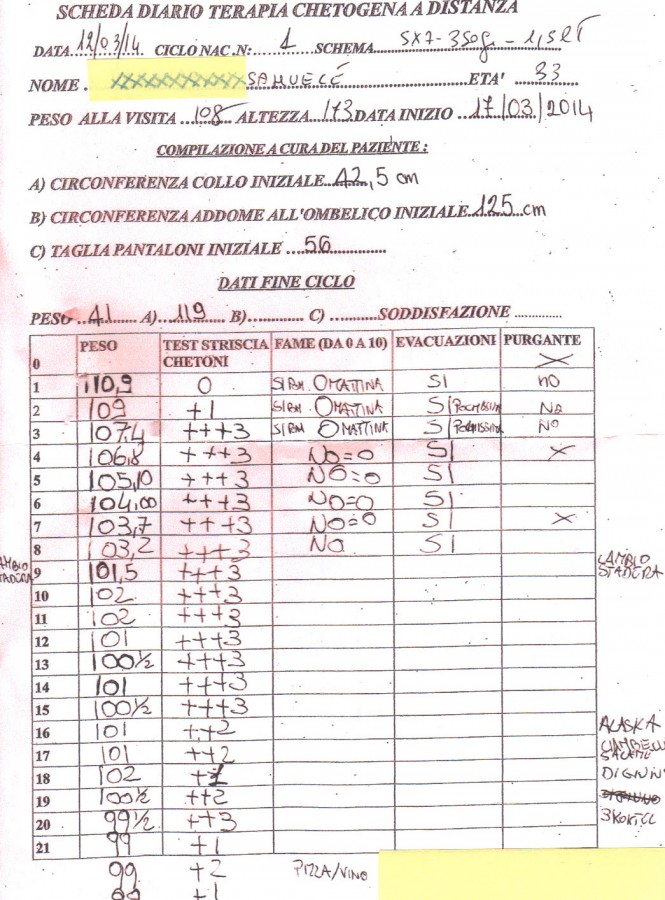 SCHEDA DIARIO TERAPIA CHETOGENA A DISTANZA
DATA 12/03/14 CICLO NAC .N: 1 SCHEMA SX7-350g - 1,5LT
NOME . SAMUELE ETA' 33
PESO ALLA VISITA 108 ALTEZZA 173 DATA INIZIO 17/03/2014
COMPILAZIONE A CURA DEL PAZIENTE :
A) CIRCONFERENZA COLLO INIZIALE 42,5 cm
B) CIRCONFERENZA ADDOME ALL'OMBELICO INIZIALE 125 cm
C) TAGLIA PANTALONI INIZIALE 56
DATI FINE CICLO
PESO 41 A) 119 B) C) SODDISFAZIONE
0 PESO TEST STRISCIA CHETONI FAME (DA 0 A 10) EVACUAZIONI PURGANTE X
1 110,9 0 MATTINA SI NO
2 109 +1 MATTINA SI NO
3 107,4 +++3 MATTINA SI NO
4 106,8 +++3 NO=0 SI X
5 105,10 +++3 NO=0 SI
6 104,00 +++3 NO=0 SI
7 103,7 +++3 NO=0 SI X
8 103,2 +++3 NO SI
CAMBIO STADERA 9 101,5 +++3 CAMBIO STADERA
10 102 +++3
11 102 +++3
12 101 +++3
13 100½ +++3
14 101 +++3
15 100½ +++3
16 101 ++2 ALASKA
17 101 ++2 SALAME
18 102 DIGIUN
19 100½ ++2
20 99½ ++3
21 99 +1
99 +2 PIZZA/VINO
99 +1